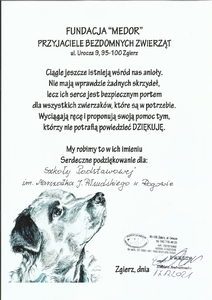 FUNDACJA "MEDOR"
PRZYJACIELE BEZDOMNYCH ZWIERZĄT
ul. Urocza 9, 95-100 Zgierz
Ciągle jeszcze istnieją wśród nas anioły.
Nie mają wprawdzie żadnych skrzydeł,
lecz ich serce jest bezpiecznym portem
dla wszystkich zwierzaków, które są w potrzebie.
Wyciągają ręce i proponują swoją pomoc tym,
którzy nie potrafią powiedzieć DZIĘKUJĘ.
My robimy to w ich imieniu
Serdeczne podziękowanie dla:
Szkoły Podstawowej
im. Marszałka J. Piłsudskiego w
Zgierz, dnia